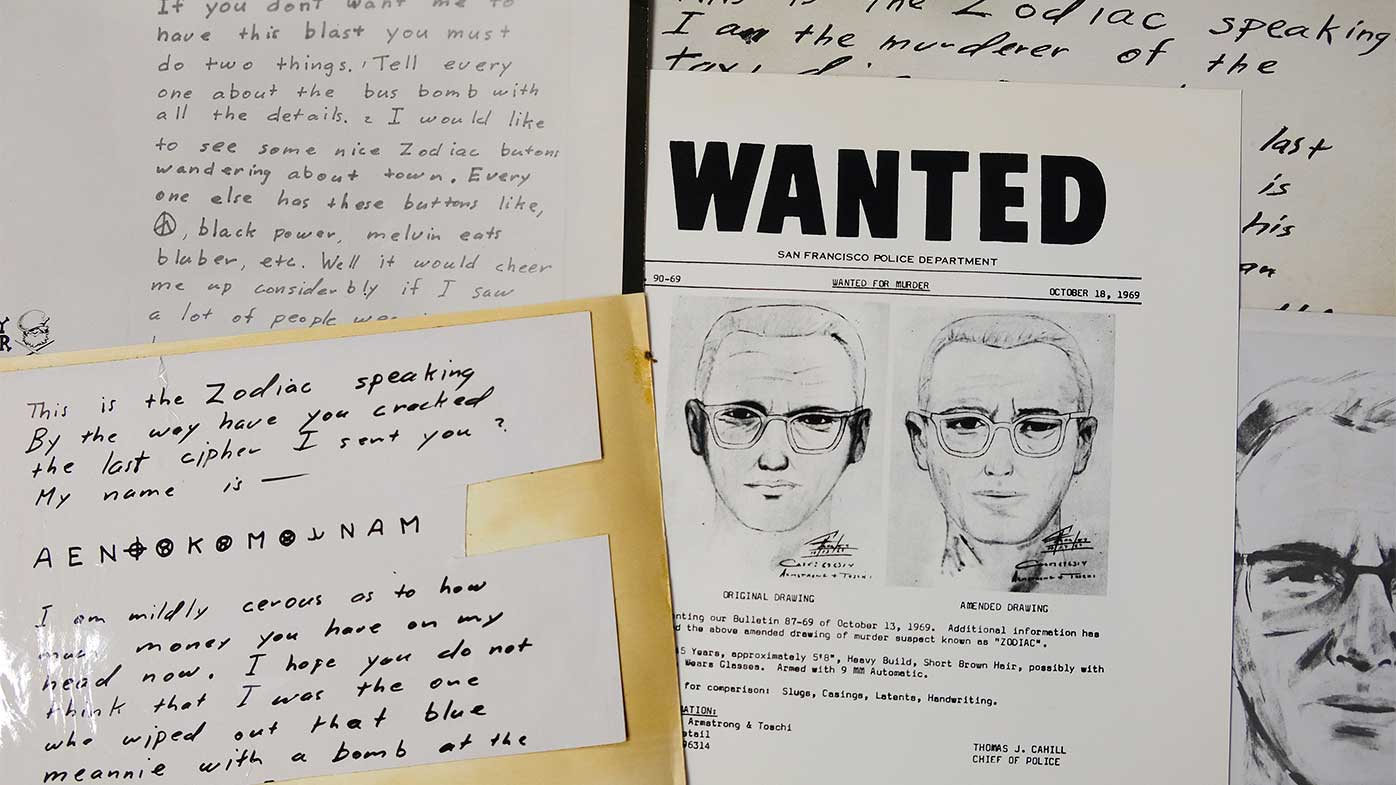 If you dont want me to
have this blast you must
do two things. 1 Tell every
one about the bus bomb with
all the details. 2 I would like
to see some nice Zodiac butons
wandering about town. Every
one else has these buttons like,
☮, black power, melvin eats
bluber, etc. Well it would cheer
me up considerbly if I saw
a lot of people
This is the Zodiac speaking
I am the murderer of the
last
is
his
an
This is the Zodiac speaking
By the way have you cracked
the last cipher I sent you ?
My name is —
A E N ⌖ ⊗ K ⊗ M ⊗ ⅄ N A M
I am mildly cerous as to how
much money you have on my
head now. I hope you do not
think that I was the one
who wiped out that blue
meannie with a bomb at the
WANTED
SAN FRANCISCO POLICE DEPARTMENT
90-69 WANTED FOR MURDER OCTOBER 18, 1969
ORIGINAL DRAWING AMENDED DRAWING
nting our Bulletin 87-69 of October 13, 1969. Additional information has
d the above amended drawing of murder suspect known as "ZODIAC".
5 Years, approximately 5'8", Heavy Build, Short Brown Hair, possibly with
Wears Glasses. Armed with 9 MM Automatic.
for comparison: Slugs, Casings, Latents, Handwriting.
ATION:
Armstrong & Toschi
etail
96314
THOMAS J. CAHILL
CHIEF OF POLICE